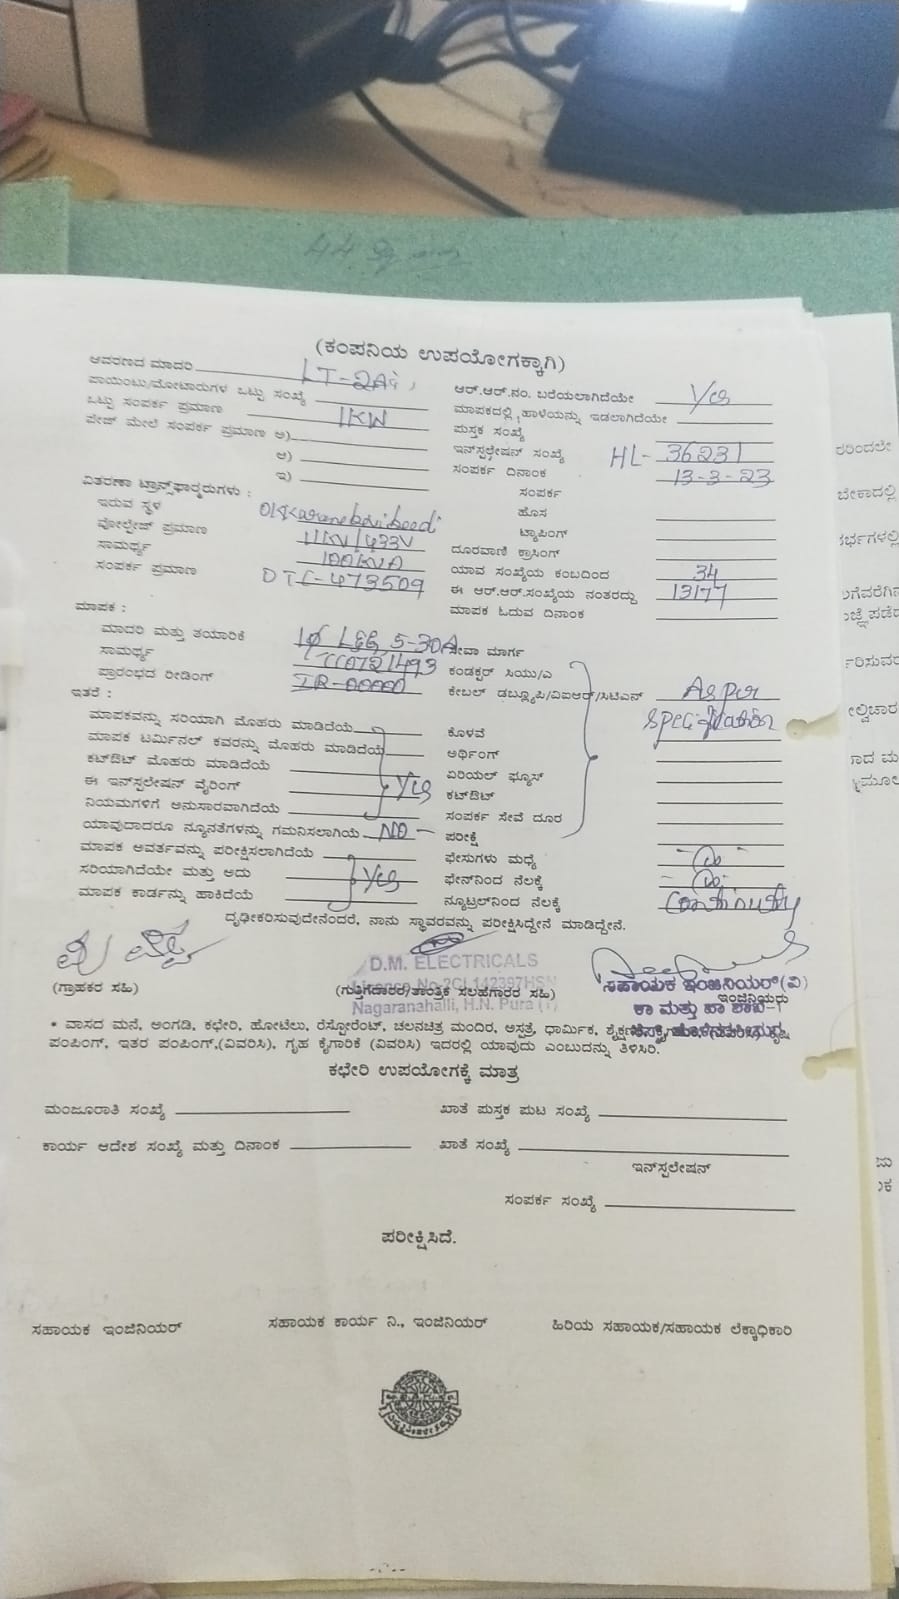 (ಕಂಪನಿಯ ಉಪಯೋಗಕ್ಕಾಗಿ)
ಆವರಣದ ಮಾದರಿ LT-2Ai
ಆರ್.ಆರ್.ನಂ. ಬರೆಯಲಾಗಿದೆಯೇ Yes
ಪಾಯಿಂಟು/ಮೋಟಾರುಗಳ ಒಟ್ಟು ಸಂಖ್ಯೆ
ಮಾಪಕದಲ್ಲಿ ಹಾಳೆಯನ್ನು ಇಡಲಾಗಿದೆಯೇ
ಒಟ್ಟು ಸಂಪರ್ಕ ಪ್ರಮಾಣ 1KW
ಪುಸ್ತಕ ಸಂಖ್ಯೆ
ಪೇಜ್ ಮೇಲೆ ಸಂಪರ್ಕ ಪ್ರಮಾಣ ಅ)
ಇನ್‌ಸ್ಟಲೇಷನ್ ಸಂಖ್ಯೆ HL-36231
ಆ)
ಸಂಪರ್ಕ ದಿನಾಂಕ 13-3-23
ಇ)
ಸಂಪರ್ಕ
ವಿತರಣಾ ಟ್ರಾನ್ಸ್‌ಫಾರ್ಮರುಗಳು :
ಹೊಸ
ಇರುವ ಸ್ಥಳ
ಟ್ಯಾಪಿಂಗ್
ವೋಲ್ಟೇಜ್ ಪ್ರಮಾಣ 11KV/433V
ದೂರವಾಣಿ ಕ್ರಾಸಿಂಗ್
ಸಾಮರ್ಥ್ಯ 100KVA
ಯಾವ ಸಂಖ್ಯೆಯ ಕಂಬದಿಂದ 34
ಸಂಪರ್ಕ ಪ್ರಮಾಣ DTC-473509
ಈ ಆರ್.ಆರ್.ಸಂಖ್ಯೆಯ ನಂತರದ್ದು 13177
ಮಾಪಕ :
ಮಾಪಕ ಓದುವ ದಿನಾಂಕ
ಮಾದರಿ ಮತ್ತು ತಯಾರಿಕೆ 1ф L&G 5-30A
ಸೇವಾ ಮಾರ್ಗ
ಸಾಮರ್ಥ್ಯ
ಕಂಡಕ್ಟರ್ ಸಿಯು/ಎ
ಪ್ರಾರಂಭದ ರೀಡಿಂಗ್ IR-00000
ಕೇಬಲ್ ಡಬ್ಲ್ಯೂಪಿ/ವಿಐಆರ್/ಸಿಟಿಎಸ್ As per
ಇತರೆ :
Specification
ಮಾಪಕವನ್ನು ಸರಿಯಾಗಿ ಮೊಹರು ಮಾಡಿದೆಯೆ
ಕೊಳವೆ
ಮಾಪಕ ಟರ್ಮಿನಲ್ ಕವರನ್ನು ಮೊಹರು ಮಾಡಿದೆಯೆ
ಅರ್ಥಿಂಗ್
ಕಟ್‌ಔಟ್ ಮೊಹರು ಮಾಡಿದೆಯೆ
ಏರಿಯಲ್ ಫ್ಯೂಸ್
ಈ ಇನ್‌ಸ್ಟಲೇಷನ್ ವೈರಿಂಗ್ Yes
ಕಟ್‌ಔಟ್
ನಿಯಮಗಳಿಗೆ ಅನುಸಾರವಾಗಿದೆಯೆ
ಸಂಪರ್ಕ ಸೇವೆ ದೂರ
ಯಾವುದಾದರೂ ನ್ಯೂನತೆಗಳನ್ನು ಗಮನಿಸಲಾಗಿಯೆ NO
ಪರೀಕ್ಷೆ
ಮಾಪಕ ಅವರ್ತವನ್ನು ಪರೀಕ್ಷಿಸಲಾಗಿದೆಯೆ
ಫೇಸುಗಳು ಮಧ್ಯೆ
ಸರಿಯಾಗಿದೆಯೇ ಮತ್ತು ಅದು Yes
ಫೇಸ್‌ನಿಂದ ನೆಲಕ್ಕೆ
ಮಾಪಕ ಕಾರ್ಡನ್ನು ಹಾಕಿದೆಯೆ
ನ್ಯೂಟ್ರಲ್‌ನಿಂದ ನೆಲಕ್ಕೆ Continuity
ದೃಢೀಕರಿಸುವುದೇನೆಂದರೆ, ನಾನು ಸ್ಥಾವರವನ್ನು ಪರೀಕ್ಷಿಸಿದ್ದೇನೆ ಮಾಡಿದ್ದೇನೆ.
D.M. ELECTRICALS
(ಗ್ರಾಹಕರ ಸಹಿ)
(ಗುತ್ತಿಗೆದಾರರ/ತಾಂತ್ರಿಕ ಸಲಹೆಗಾರರ ಸಹಿ)
ಸಹಾಯಕ ಇಂಜಿನಿಯರ್(ವಿ)
ಇಂಜಿನಿಯರು
Nagaranahalli, H.N. Pura (T)
• ವಾಸದ ಮನೆ, ಅಂಗಡಿ, ಕಛೇರಿ, ಹೋಟೆಲು, ರೆಸ್ಟೋರೆಂಟ್, ಚಲನಚಿತ್ರ ಮಂದಿರ, ಅಸ್ಪತ್ರೆ, ಧಾರ್ಮಿಕ,
ಪಂಪಿಂಗ್, ಇತರ ಪಂಪಿಂಗ್,(ವಿವರಿಸಿ), ಗೃಹ ಕೈಗಾರಿಕೆ (ವಿವರಿಸಿ) ಇದರಲ್ಲಿ ಯಾವುದು ಎಂಬುದನ್ನು ತಿಳಿಸಿರಿ.
ಕಛೇರಿ ಉಪಯೋಗಕ್ಕೆ ಮಾತ್ರ
ಮಂಜೂರಾತಿ ಸಂಖ್ಯೆ
ಖಾತೆ ಪುಸ್ತಕ ಪುಟ ಸಂಖ್ಯೆ
ಕಾರ್ಯ ಆದೇಶ ಸಂಖ್ಯೆ ಮತ್ತು ದಿನಾಂಕ
ಖಾತೆ ಸಂಖ್ಯೆ
ಇನ್‌ಸ್ಟಲೇಷನ್
ಸಂಪರ್ಕ ಸಂಖ್ಯೆ
ಪರೀಕ್ಷಿಸಿದೆ.
ಸಹಾಯಕ ಇಂಜಿನಿಯರ್
ಸಹಾಯಕ ಕಾರ್ಯ ನಿ., ಇಂಜಿನಿಯರ್
ಹಿರಿಯ ಸಹಾಯಕ/ಸಹಾಯಕ ಲೆಕ್ಕಾಧಿಕಾರಿ